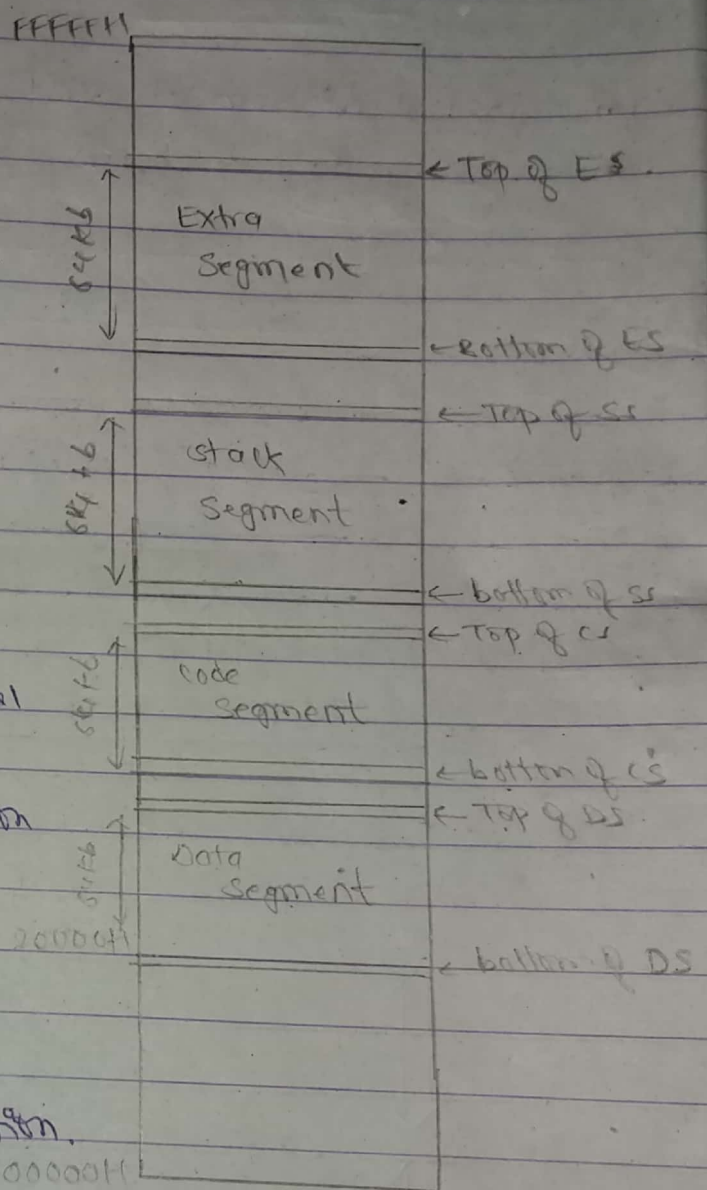 FFFFFH
← Top of ES.
64Kb
Extra
Segment
← Bottom of ES
← Top of SS
64Kb
stack
Segment
← bottom of SS
← Top of CS
64Kb
code
segment
← bottom of CS
← Top of DS.
64Kb
Data
segment
20000H
← bottom of DS
00000H